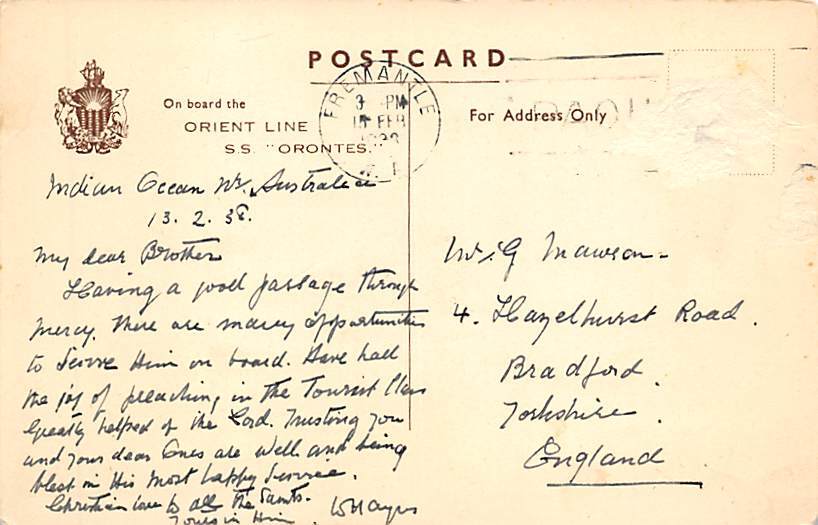 POSTCARD
On board the
ORIENT LINE
S.S. "ORONTES."
FREMANTLE
3 - PM
15 FEB
For Address Only
Indian Ocean Nr. Australia
13. 2. 38.
My dear Brother
Having a good passage through
mercy. There are many opportunities
to serve Him on board. Have had
the joy of preaching in the Tourist Class
Greatly helped of the Lord. Trusting you
and your dear Ones are well and being
blest in His most happy Service.
Christian love to all the Saints.
Yours in Him. W Hayes
Mawson
4. Hazelhurst Road.
Bradford.
Yorkshire.
England